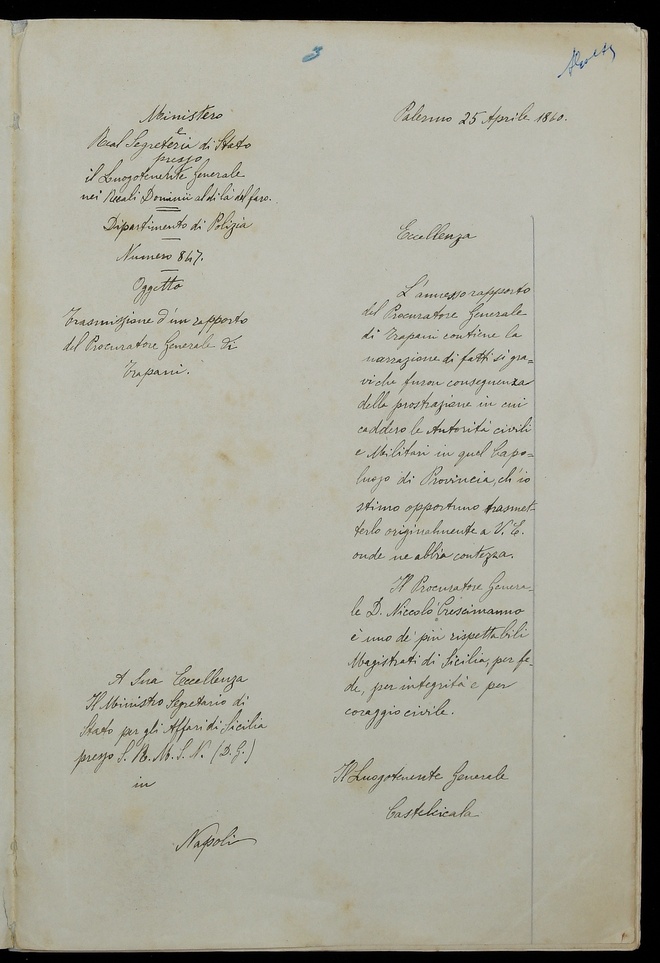 3
Ministero
e
Real Segreteria di Stato
presso
il Luogotenente Generale
nei Reali Dominii al di là del faro.
Dipartimento di Polizia
Numero 847.
Oggetto
Trasmissione d'un rapporto
del Procuratore Generale di
Trapani.
A Sua Eccellenza
Il Ministro Segretario di
Stato per gli Affari di Sicilia
presso S. R. M. S. N. (D. G.)
in
Napoli
Palermo 25 Aprile 1860.
Eccellenza
L'annesso rapporto
del Procuratore Generale
di Trapani contiene la
narrazione di fatti sì gra=
vi che furon conseguenza
della prostrazione in cui
caddero le Autorità civili
e Militari in quel Capo=
luogo di Provincia, ch'io
stimo opportuno trasmet-
terlo originalmente a V. E.
onde ne abbia contezza.
Il Procuratore Genera-
le D. Niccolò Crescimanno
è uno de' più rispettabili
Magistrati di Sicilia, per fe-
de, per integrità e per
coraggio civile.
Il Luogotenente Generale
Castelcicala